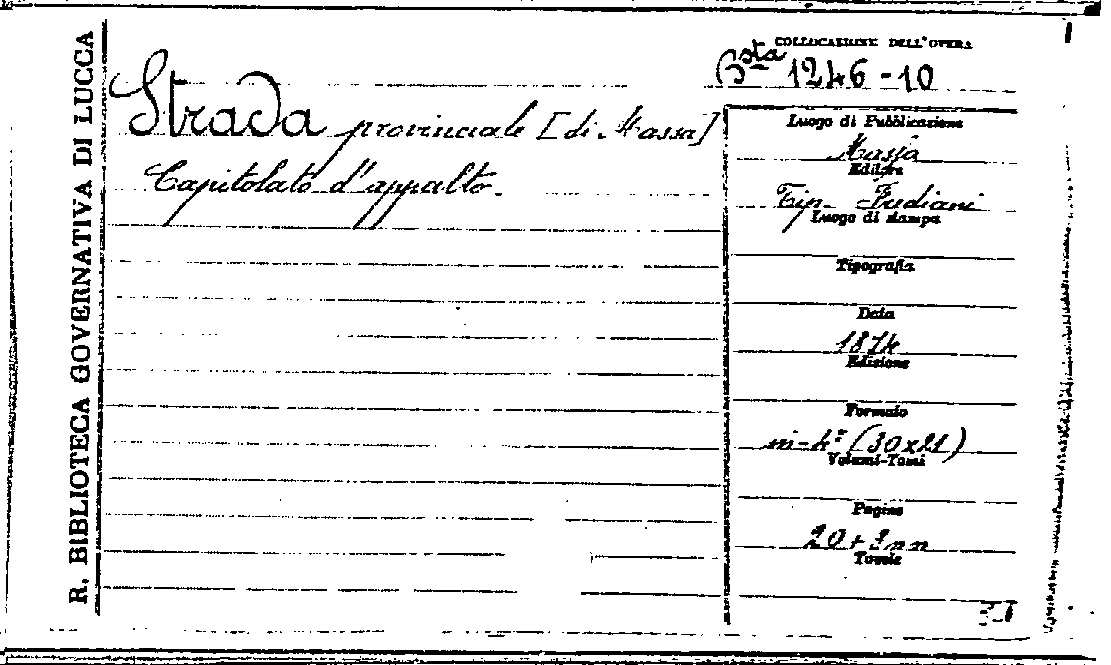 R. BIBLIOTECA GOVERNATIVA DI LUCCA
COLLOCAZIONE DELL'OPERA
Bsta 1246-10
Strada provinciale [di Massa]
Capitolato d'appalto.
Luogo di Pubblicazione
Massa
Editore
Tip. Frediani
Luogo di stampa
Tipografia
Data
1874
Edizione
Formato
in-4º (30x21)
Volumi-Tomi
Pagine
20+2nn
Tavole